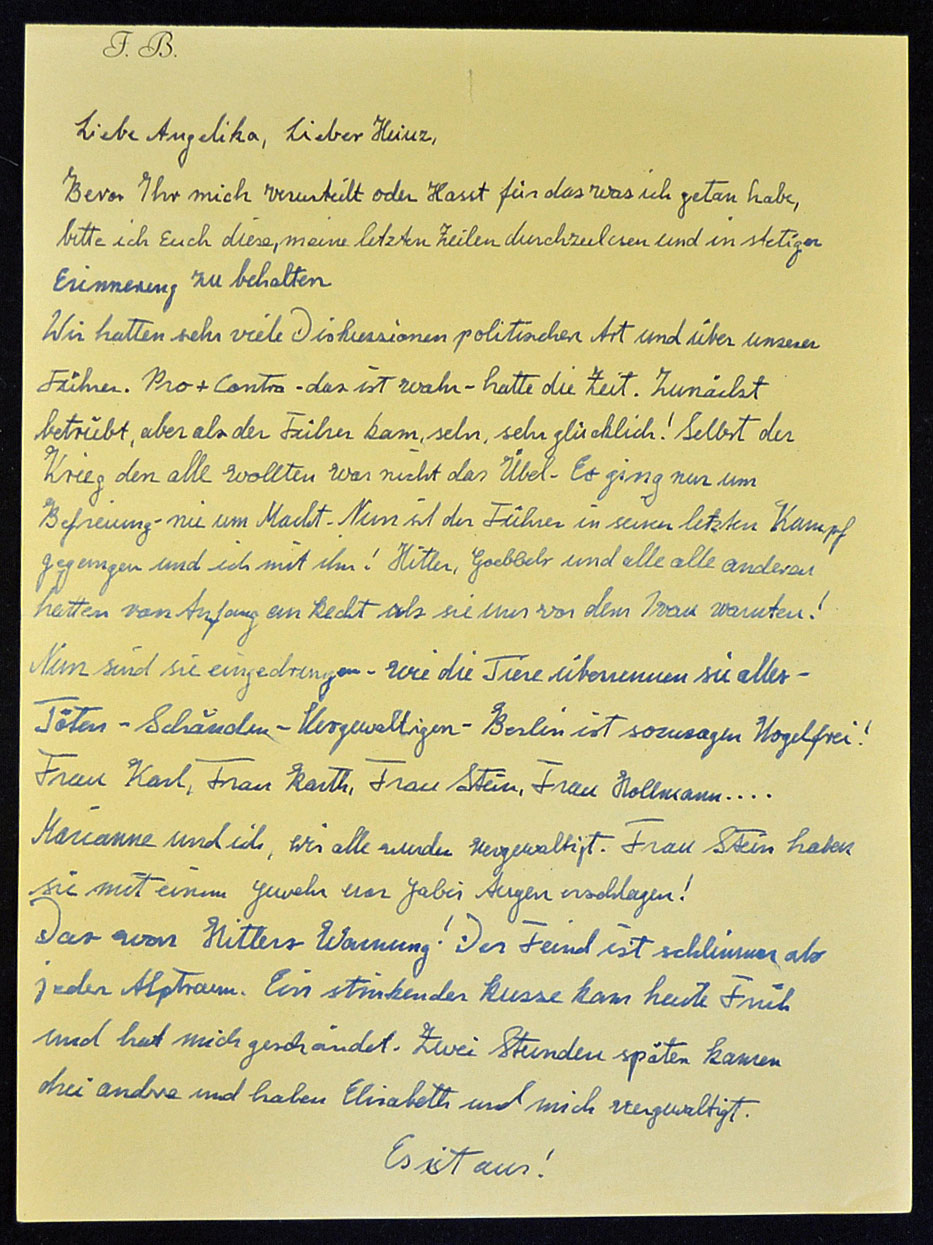 F. B.
Liebe Angelika, Lieber Heinz,
Bevor Ihr mich verurteilt oder Hasst für das was ich getan habe,
bitte ich Euch diese, meine letzten Zeilen durchzulesen und in stetiger
Erinnerung zu behalten
Wir hatten sehr viele Diskussionen politischer Art und über unseren
Führer. Pro + Contra - das ist wahr - hatte die Zeit. Zunächst
betrübt, aber als der Führer kam, sehr, sehr glücklich! Selbst der
Krieg den alle wollten war nicht das Übel - Es ging nur um
Befreiung - nie um Macht - Nun ist der Führer in seinen letzten Kampf
gegangen und ich mit ihm! Hitler, Goebbels und alle alle anderen
hatten von Anfang an Recht als sie uns vor dem Iwan warnten!
Nun sind sie eingedrungen - wie die Tiere überrennen sie alles -
Töten - Schänden - Vergewaltigen - Berlin ist sozusagen Vogelfrei!
Frau Karl, Frau Barth, Frau Stein, Frau Hollmann....
Marianne und ich, wir alle wurden vergewaltigt. Frau Stein haben
sie mit einem Gewehr vor Gabis Augen erschlagen!
Das war Hitlers Warnung! Der Feind ist schlimmer als
jeder Alptraum. Ein stinkender Russe kam heute Früh
und hat mich geschändet. Zwei Stunden später kamen
drei andre und haben Elisabeth und mich vergewaltigt.
Es ist aus!